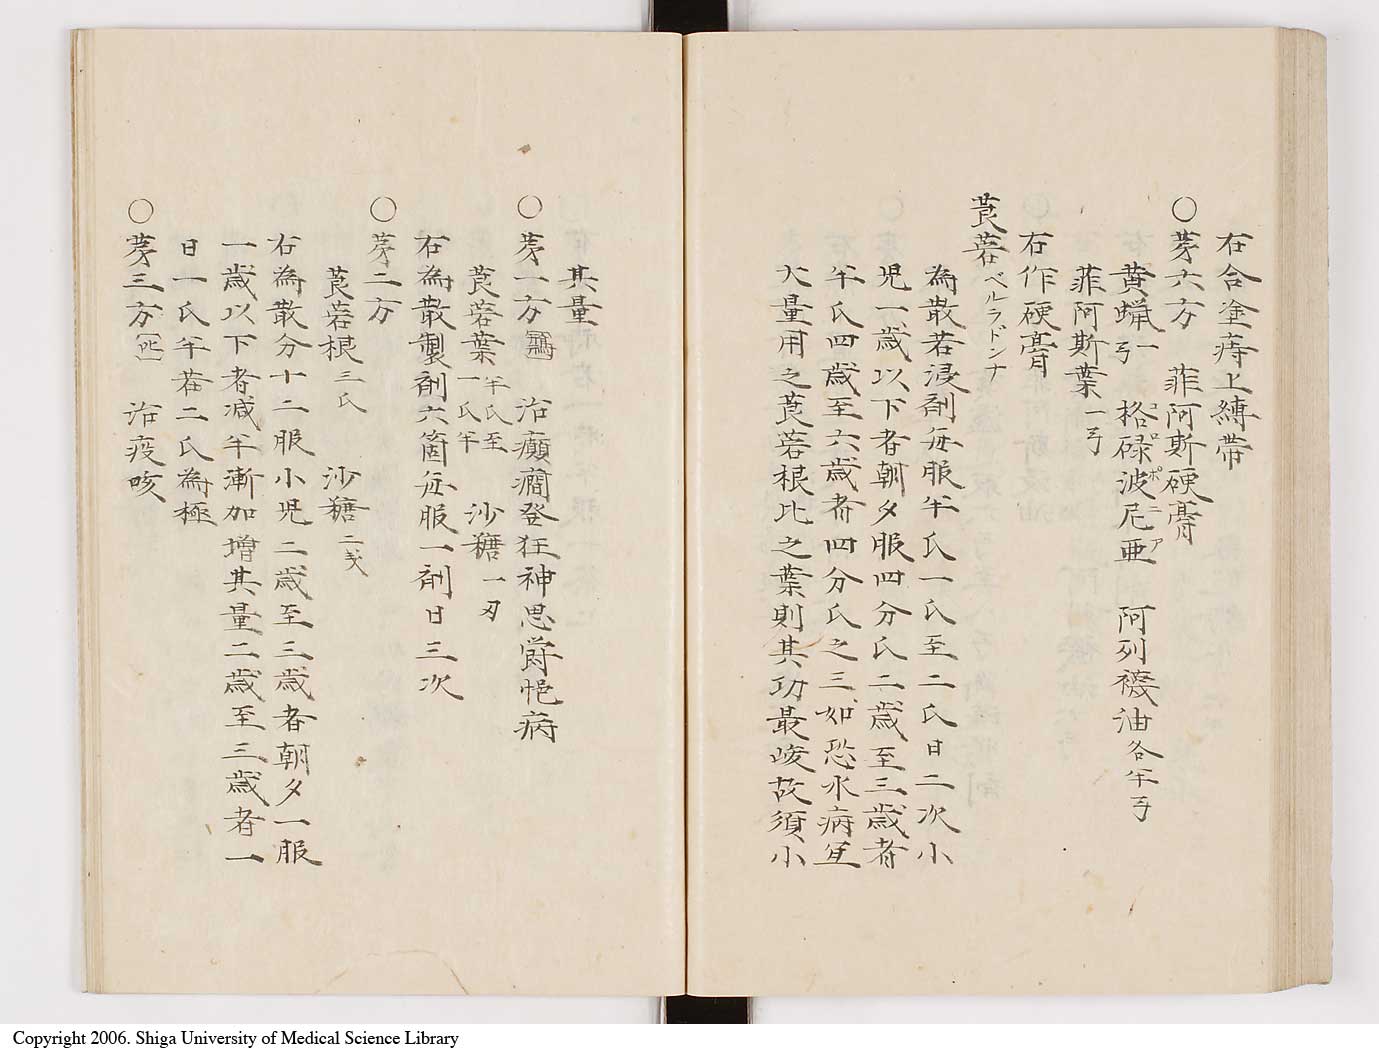 右合塗痔上縛帯
○第六方　菲阿斯硬膏
黄蝋一丂　格碌波尼亜コロポニア　阿列襪油各半丂
菲阿斯葉一丂
右作硬膏
莨菪ベルラドンナ
為散若浸剤毎服半氏一氏至二氏日二次小
児一歳以下者朝夕服四分氏二歳至三歳者
半氏四歳至六歳者四分氏之三如恐水病宜
大量用之莨菪根比之葉則其功最峻故須小
其量
○第一方　治癲癇登狂神思欝悒病
莨菪葉半氏至一氏半　沙糖一刃
右為散製剤六箇毎服一剤日三次
○第二方
莨菪根三氏　沙糖二戋
右為散分十二服小児二歳至三歳者朝夕一服
一歳以下者減半漸加増其量二歳至三歳者一
日一氏半若二氏為極
○第三方　治疫咳
Copyright 2006. Shiga University of Medical Science Library